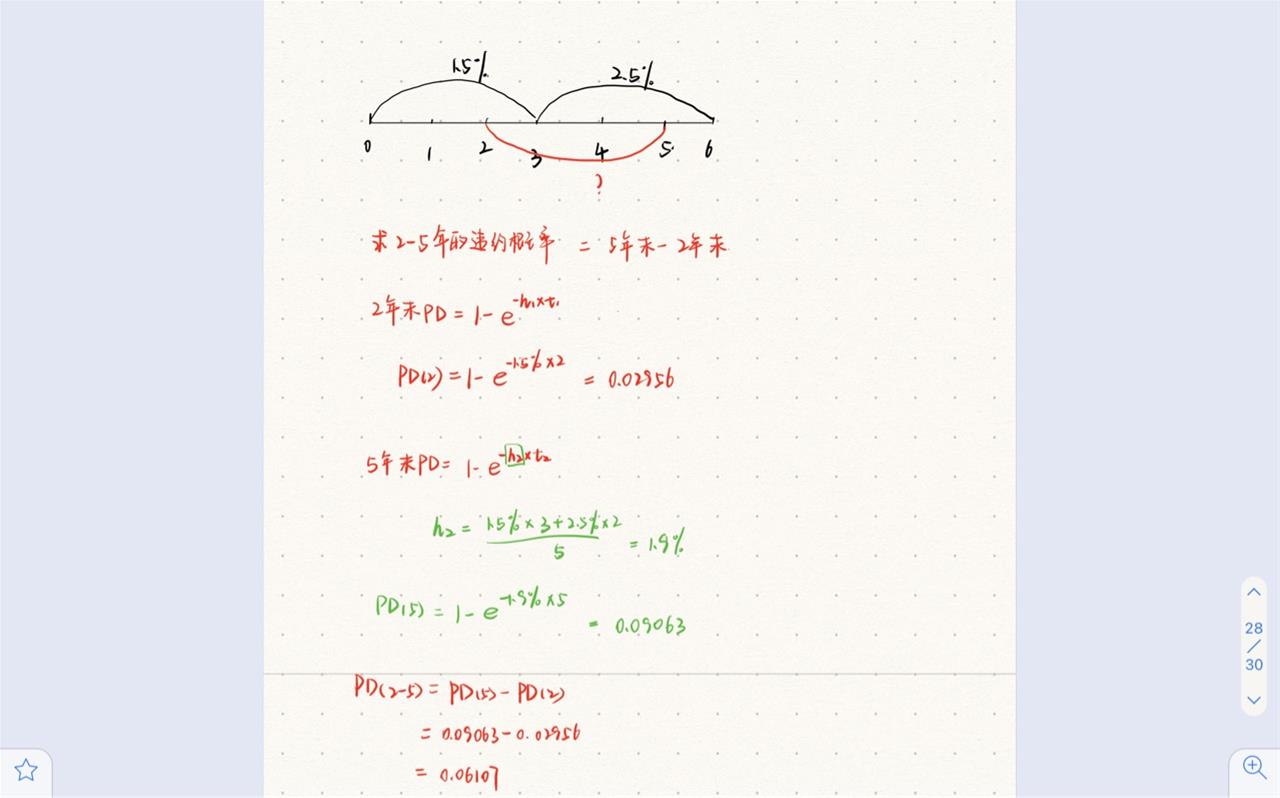 1.5% 2.5%
0 1 2 3 4 5 6
?
求2-5年的违约概率 = 5年末-2年末
2年末PD = 1- e^-h₁×t₁
PD(2) = 1- e^-1.5%×2 = 0.02956
5年末PD = 1- e^-h₂×t₂
h₂ = 1.5%×3+2.5%×2 / 5 = 1.9%
PD(5) = 1- e^-1.9%×5 = 0.09063
PD(2-5) = PD(5) - PD(2)
= 0.09063-0.02956
= 0.06107
28
/
30